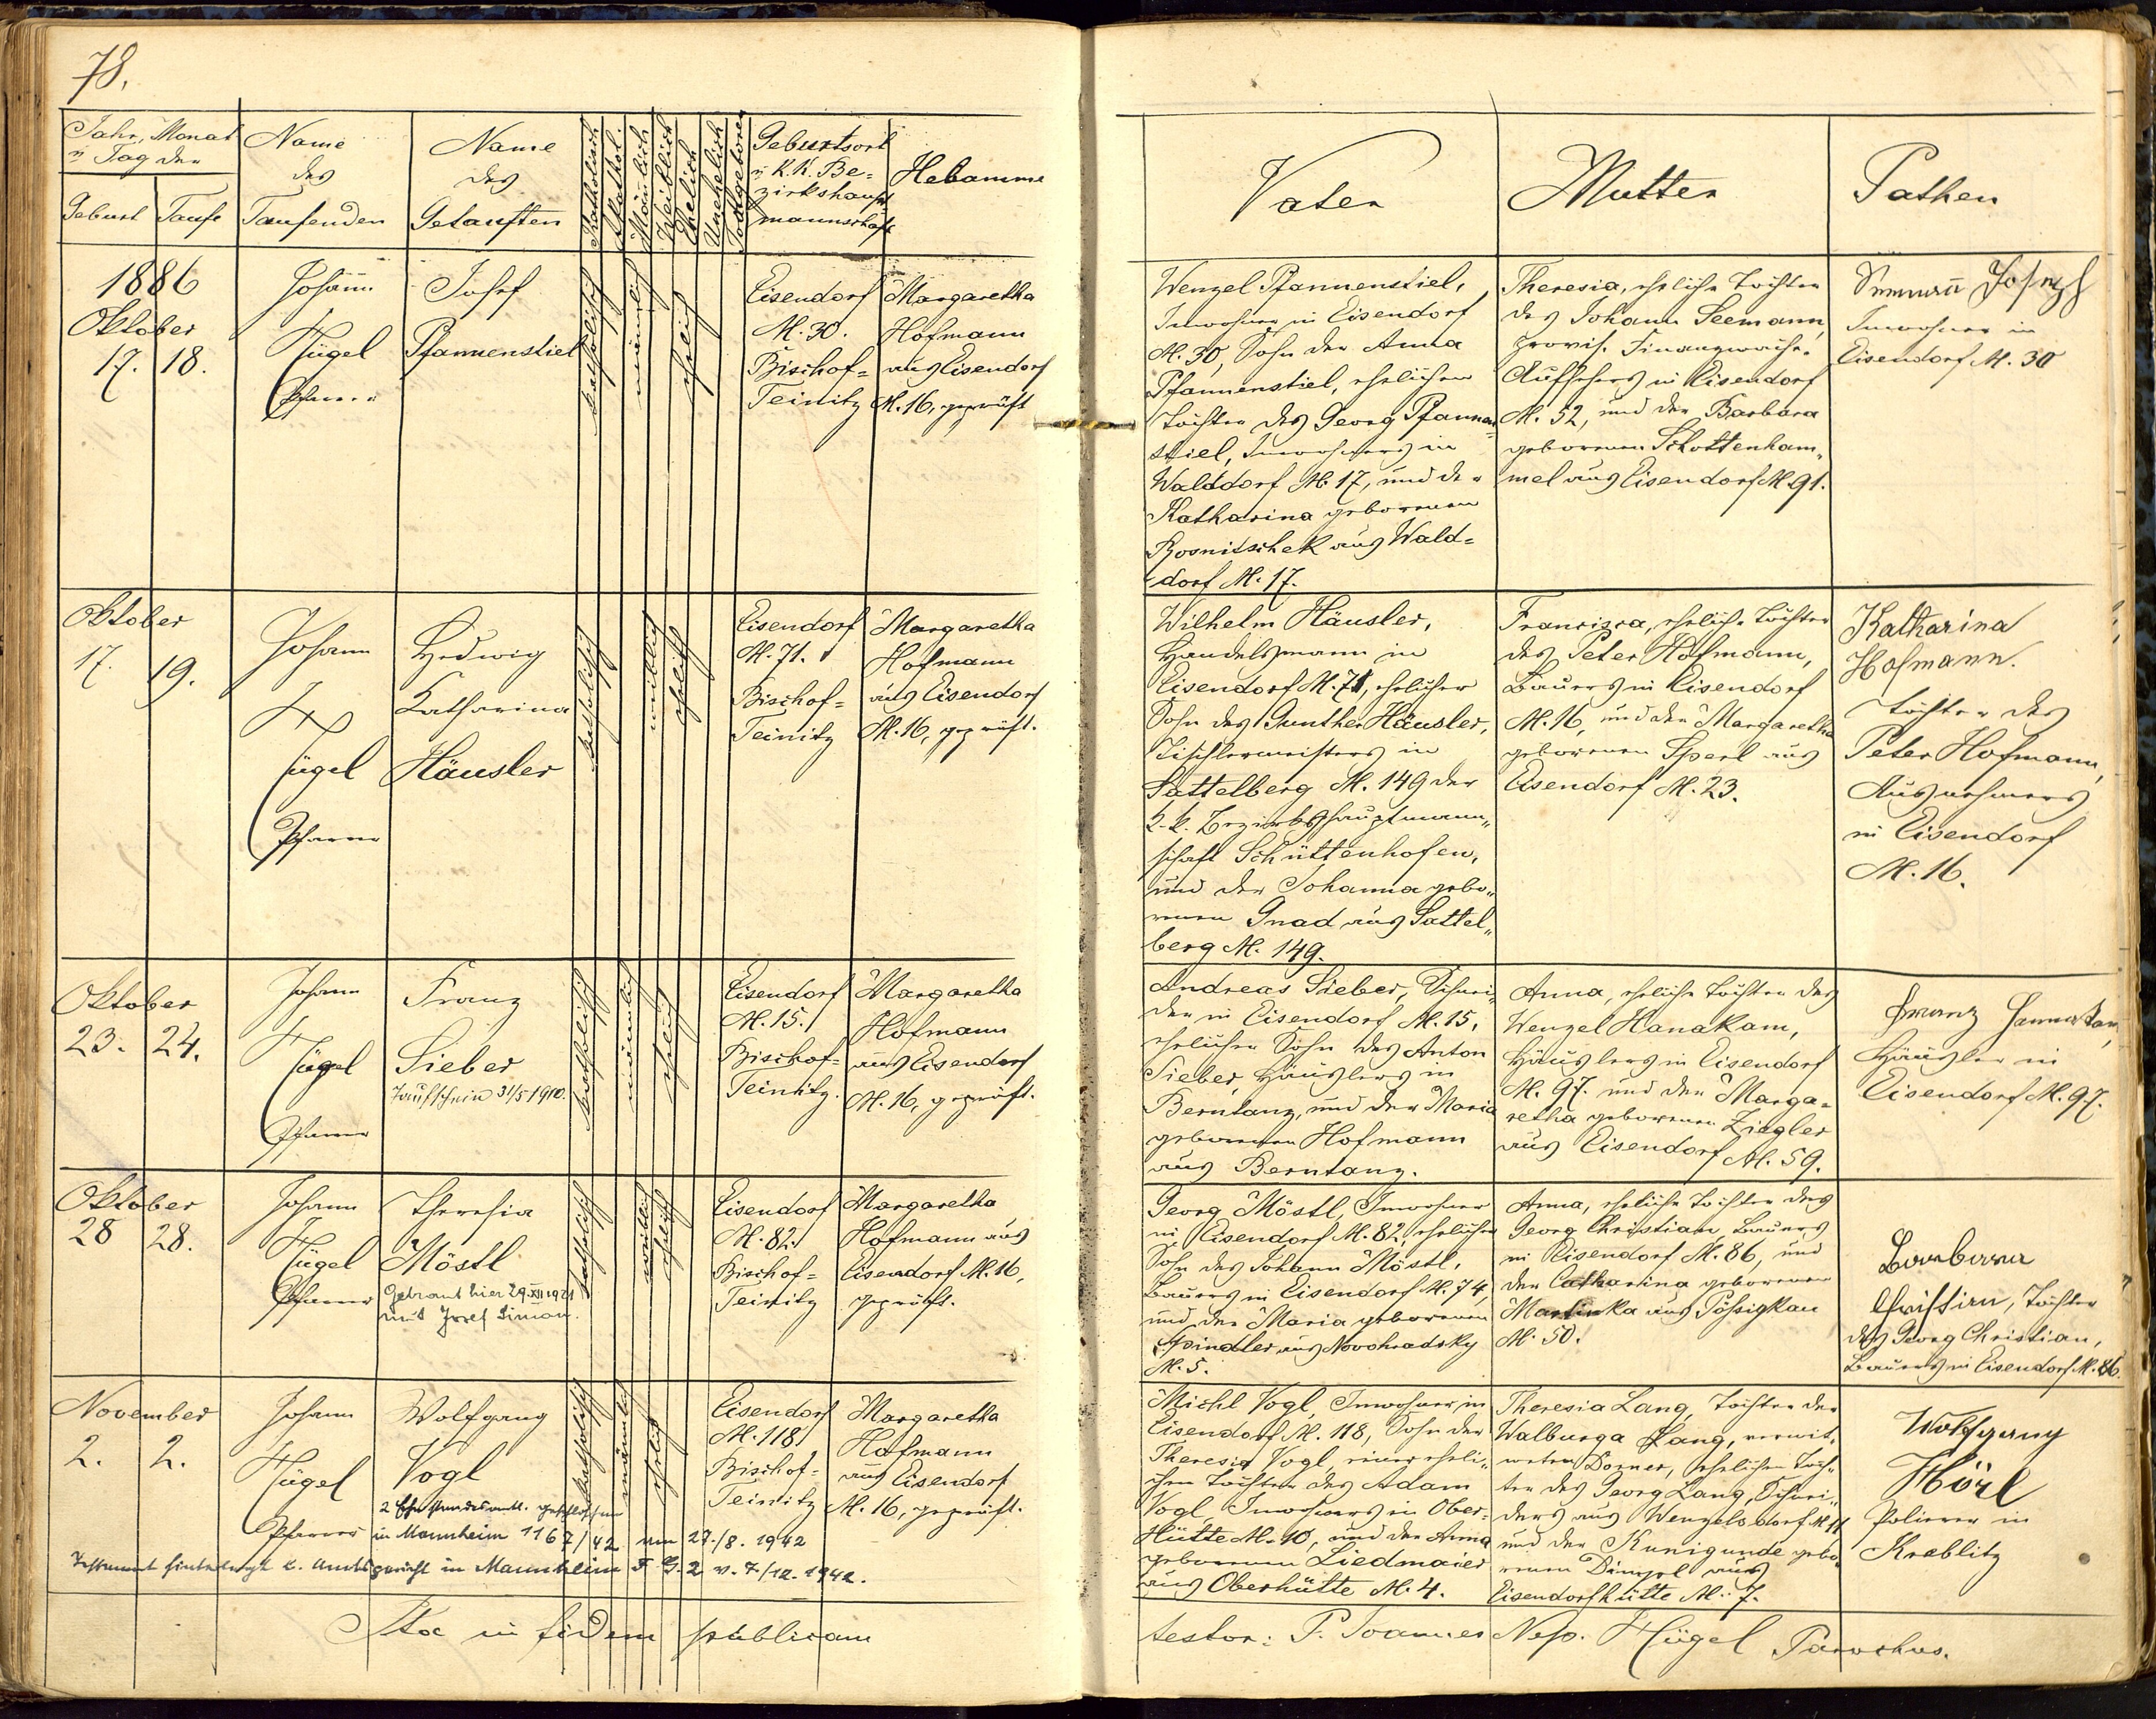 78.
Jahr, Monat
u Tag der
Geburt
Taufe
Name
des
Taufenden
Name
des
Getauften
Katholisch
Akathol.
Männlich
Weiblich
Ehelich
Unehelich
Todtgeboren
Geburtsort
u k. k. Be=
zirkshaupt
mannschaft
Hebamme
Vater
Mutter
Pathen
1886
Oktober
17. 18.
Johann
Hügel
Pfarrer
Josef
Pfannenstiel
katholisch
männlich
ehelich
Eisendorf
N. 30.
Bischof=
Teinitz
Margaretha
Hofmann
aus Eisendorf
N. 16, geprüft
Wenzel Pfannenstiel,
Inwohner in Eisendorf
N. 30, Sohn der Anna
Pfannenstiel, ehelichen
Tochter des Georg Pfannen=
stiel, Inwohners in
Walddorf N. 17, und der
Katharina geborenen
Bosnitschek aus Wald=
dorf N. 17.
Theresia, eheliche Tochter
des Johann Seemann,
provis. Finanzwach=
Aufsehers in Eisendorf
N. 52, und der Barbara
geborenen Schottenham„
mel aus Eisendorf N. 91.
Seemann Joseph
Inwohner in
Eisendorf N. 30
Oktober
17. 19.
Johann
Hügel
Pfarrer
Hedwig
Katharina
Häusler
katholisch
weiblich
ehelich
Eisendorf
N. 71.
Bischof=
Teinitz
Margaretha
Hofmann
aus Eisendorf
N. 16, geprüft.
Wilhelm Häusler,
Handelsmann in
Eisendorf N. 71, ehelicher
Sohn des Gunther Häusler,
Tischlermeisters in
Sattelberg N. 149 der
k. k. Bezirkshauptmann„
schaft Schüttenhofen,
und der Johanna gebo„
renen Gnad aus Sattel„
berg N. 149.
Francisca, eheliche Tochter
des Peter Hofmann,
Bauers in Eisendorf
N. 16, und der Margaretha
geborenen Sperl aus
Eisendorf N. 23.
Katharina
Hofmann.
Tochter des
Peter Hofmann,
Ausnehmers
in Eisendorf
N. 16.
Oktober
23. 24.
Johann
Hügel
Pfarrer
Franz
Sieber
Taufschein 31/5 1910.
katholisch
männlich
ehelich
Eisendorf
N. 15.
Bischof=
Teinitz.
Margaretha
Hofmann
aus Eisendorf
N. 16, geprüft.
Andreas Sieber, Schnei„
der in Eisendorf N. 15,
ehelicher Sohn des Anton
Sieber, Häuslers in
Berntanz, und der Maria
geborenen Hofmann
aus Berntanz.
Anna, eheliche Tochter des
Wenzel Hanakam,
Häuslers in Eisendorf
N. 97. und der Marga=
retha geborenen Ziegler
aus Eisendorf N. 59.
Franz Hannakam,
Häusler in
Eisendorf N. 97.
Oktober
28 28.
Johann
Hügel
Pfarrer
Theresia
Möstl
Getraut hier 29. XII 1921
mit Josef Simon.
katholisch
weiblich
ehelich
Eisendorf
N. 82.
Bischof=
Teinitz
Margaretha
Hofmann aus
Eisendorf N. 16,
geprüft.
Georg Möstl, Inwohner
in Eisendorf N. 82, ehelicher
Sohn des Johann Möstl,
Bauers in Eisendorf N. 74,
und der Maria geborenen
Spindler aus Novohradsky
N. 5.
Anna, eheliche Tochter des
Georg Christian, Bauers
in Eisendorf N. 86, und
der Catharina geborenen
Martinka aus Pössigkau
N. 50.
Barbara
Christian, Tochter
des Georg Christian,
Bauers in Eisendorf N. 86.
November
2. 2.
Johann
Hügel
Pfarrer
Wolfgang
Vogl
2 Ehe standesamtl. geschlossen
in Mannheim 1167/42 am 27./8. 1942
Testament hinterlegt b. Amtsgericht in Mannheim F G. 2 v. 7./12. 1942.
katholisch
männlich
ehelich
Eisendorf
N. 118.
Bischof=
Teinitz
Margaretha
Hofmann
aus Eisendorf
N. 16, geprüft.
Michl Vogl, Inwohner in
Eisendorf N. 118, Sohn der
Theresia Vogl, einer eheli„
chen Tochter des Adam
Vogl, Inwohners in Ober=
Hütte N. 10, und der Anna
geborenen Liedmaier
aus Oberhütte N. 4.
Theresia Lang, Tochter der
Walburga Lang, verwit„
weten Dorner, ehelichen Toch„
ter des Georg Lang, Schnei„
ders aus Wenzelsdorf N. 11
und der Kunigunde gebo„
renen Dimpel aus
Eisendorfhütte N. 7.
Wolfgang
Hörl
Polierer in
Kreblitz
Ita in fidem publicam
testor: P. Joannes Nep. Hügel Parochus.